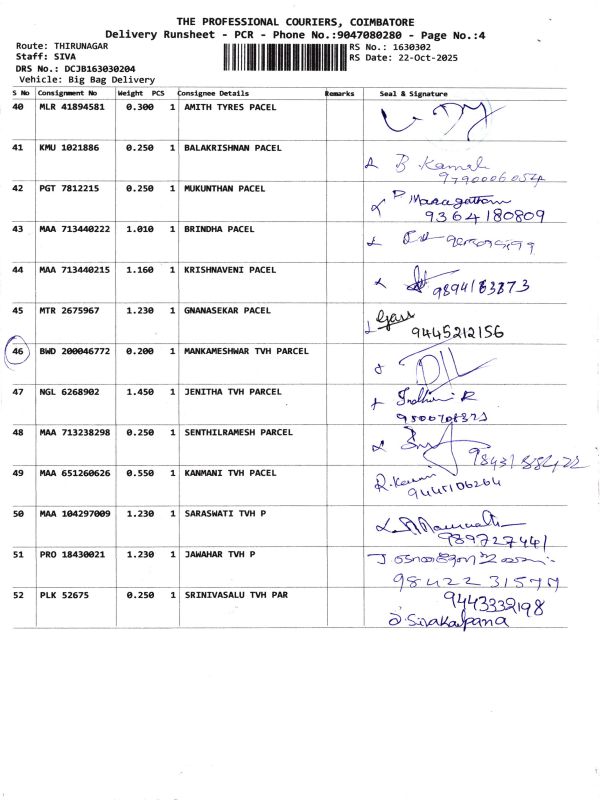 THE PROFESSIONAL COURIERS, COIMBATORE
Delivery Runsheet - PCR - Phone No.:9047080280 - Page No.:4
Route: THIRUNAGAR
Staff: SIVA
DRS No.: DCJB163030204
Vehicle: Big Bag Delivery
RS No.: 1630302
RS Date: 22-Oct-2025
S No Consignment No Weight PCS Consignee Details Remarks Seal & Signature
40 MLR 41894581 0.300 1 AMITH TYRES PACEL
41 KMU 1021886 0.250 1 BALAKRISHNAN PACEL
B. Kamal
9790006054
42 PGT 7812215 0.250 1 MUKUNTHAN PACEL
P Maragatham
9364180809
43 MAA 713440222 1.010 1 BRINDHA PACEL
44 MAA 713440215 1.160 1 KRISHNAVENI PACEL
9894183873
45 MTR 2675967 1.230 1 GNANASEKAR PACEL
9445212156
46 BWD 200046772 0.200 1 MANKAMESHWAR TVH PARCEL
47 NGL 6268902 1.450 1 JENITHA TVH PARCEL
48 MAA 713238298 0.250 1 SENTHILRAMESH PARCEL
49 MAA 651260626 0.550 1 KANMANI TVH PACEL
9445106264
50 MAA 104297009 1.230 1 SARASWATI TVH P
989727441
51 PRO 18430021 1.230 1 JAWAHAR TVH P
98422 31577
52 PLK 52675 0.250 1 SRINIVASALU TVH PAR
9443332198
Sivakalpana